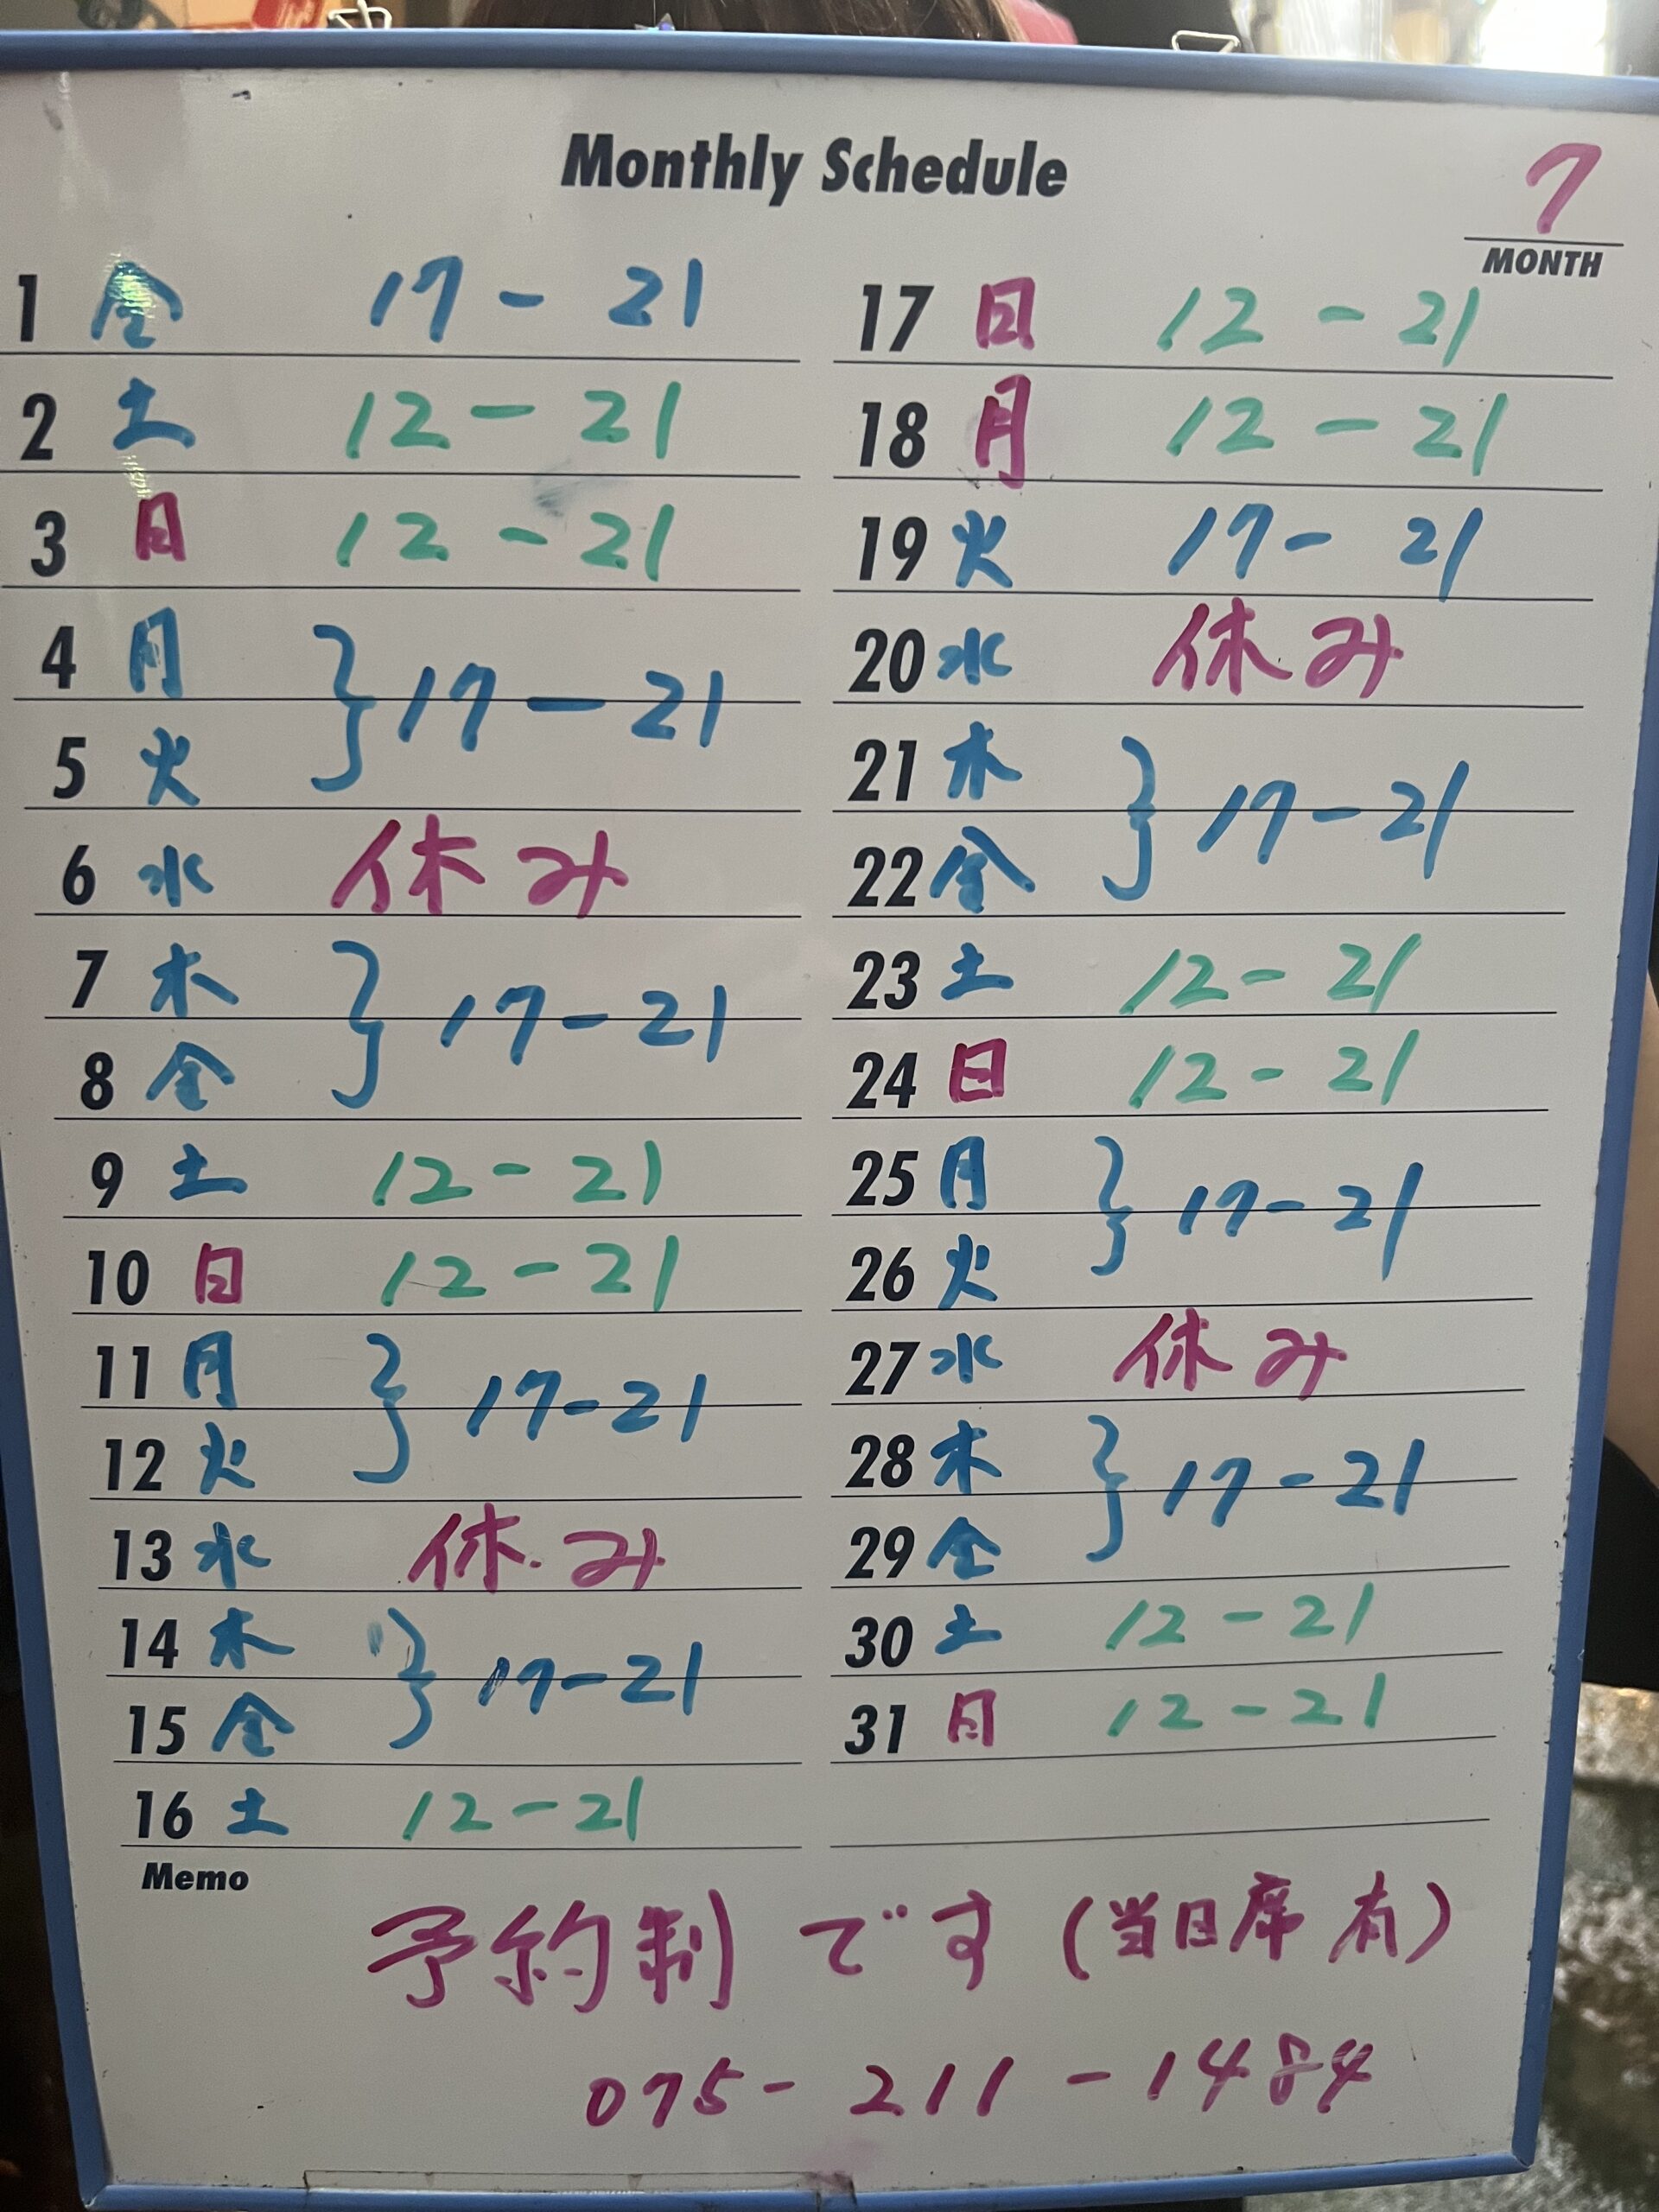 Monthly Schedule
7
MONTH
1 金 17 - 21
2 土 12 - 21
3 日 12 - 21
4 月 } 17 - 21
5 火
6 水 休み
7 木 } 17 - 21
8 金
9 土 12 - 21
10 日 12 - 21
11 月 } 17 - 21
12 火
13 水 休み
14 木 } 17 - 21
15 金
16 土 12 - 21
17 日 12 - 21
18 月 12 - 21
19 火 17 - 21
20 水 休み
21 木 } 17 - 21
22 金
23 土 12 - 21
24 日 12 - 21
25 月 } 17 - 21
26 火
27 水 休み
28 木 } 17 - 21
29 金
30 土 12 - 21
31 日 12 - 21
Memo
予約制です(当日席有)
075 - 211 - 1484